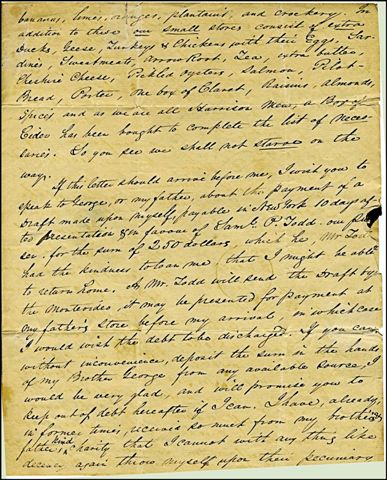 bananas, limes, oranges, plantains, and crockery. In
addition to these our small stores consist of extra
Ducks, Geese, Turkeys & Chickens with their Eggs, Sar-
dines Sweetmeats, Arrow Root, Tea, extra butter,
Cheshire Cheese, Pickled oysters, Salmon, Pilot-
Bread, Porter, One box of Claret, Raisins, almonds,
Spices and as we are all Harrison Men, a Box of
Cider has been bought to complete the list of neces-
saries. So you see we shall not starve on the
way.
If this letter should arrive before me, I wish you to
speak to George, or my father, about the payment of a
Draft made upon myself, payable in New York 10 days af-
ter presentation & in favour of Saml. P. Todd, our pur-
ser, for the sum of 250 dollars, which he, Mr Todd
had the kindness to loan me that I might be able
to return home. As Mr. Todd will send the Draft by
the Montevideo, it may be presented for payment at
my fathers Store before my arrival, in which case
I would wish the debt to be discharged. If you can,
without inconvenience, deposit the sum in the hands
of my Brother George from any available source, I
would be very glad, and will promise you to
keep out of debt hereafter if I can. I have, already,
in former times, received so much from my brothers
father's kind charity that I cannot with any thing like
decency again throw myself upon their pecuniary